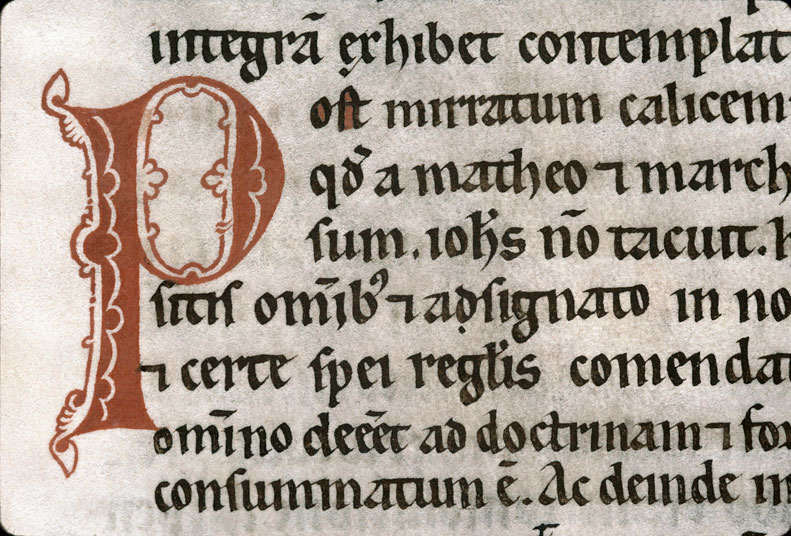 integrã exhibet contemplat
Post mirratum calicem
qđ a matheo ⁊ march
sum. ioħs nõ tacuit.
sitis om̃ibꝰ ⁊ adsignato in no
⁊ certe spei regłis comendat
om̃ino deẽet ad doctrinam ⁊ for
consummatum ẽ. Ac deinde in